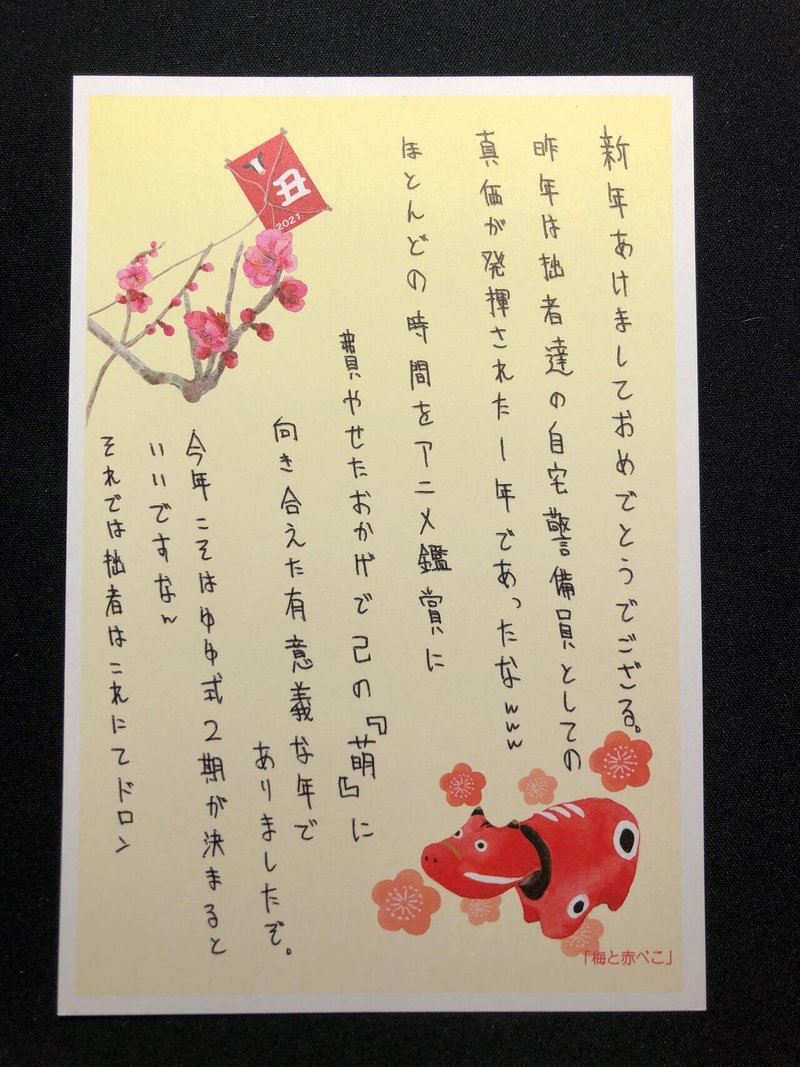 新年あけましておめでとうでござる。
昨年は拙者達の自宅警備員としての
真価が発揮された1年であったなwww
ほとんどの時間をアニメ鑑賞に
費やせたおかげで己の『萌』に
向き合えた有意義な年で
ありましたぞ。
今年こそはゆゆ式2期が決まると
いいですなw
それでは拙者はこれにてドロン
丑
2021
「梅と赤べこ」